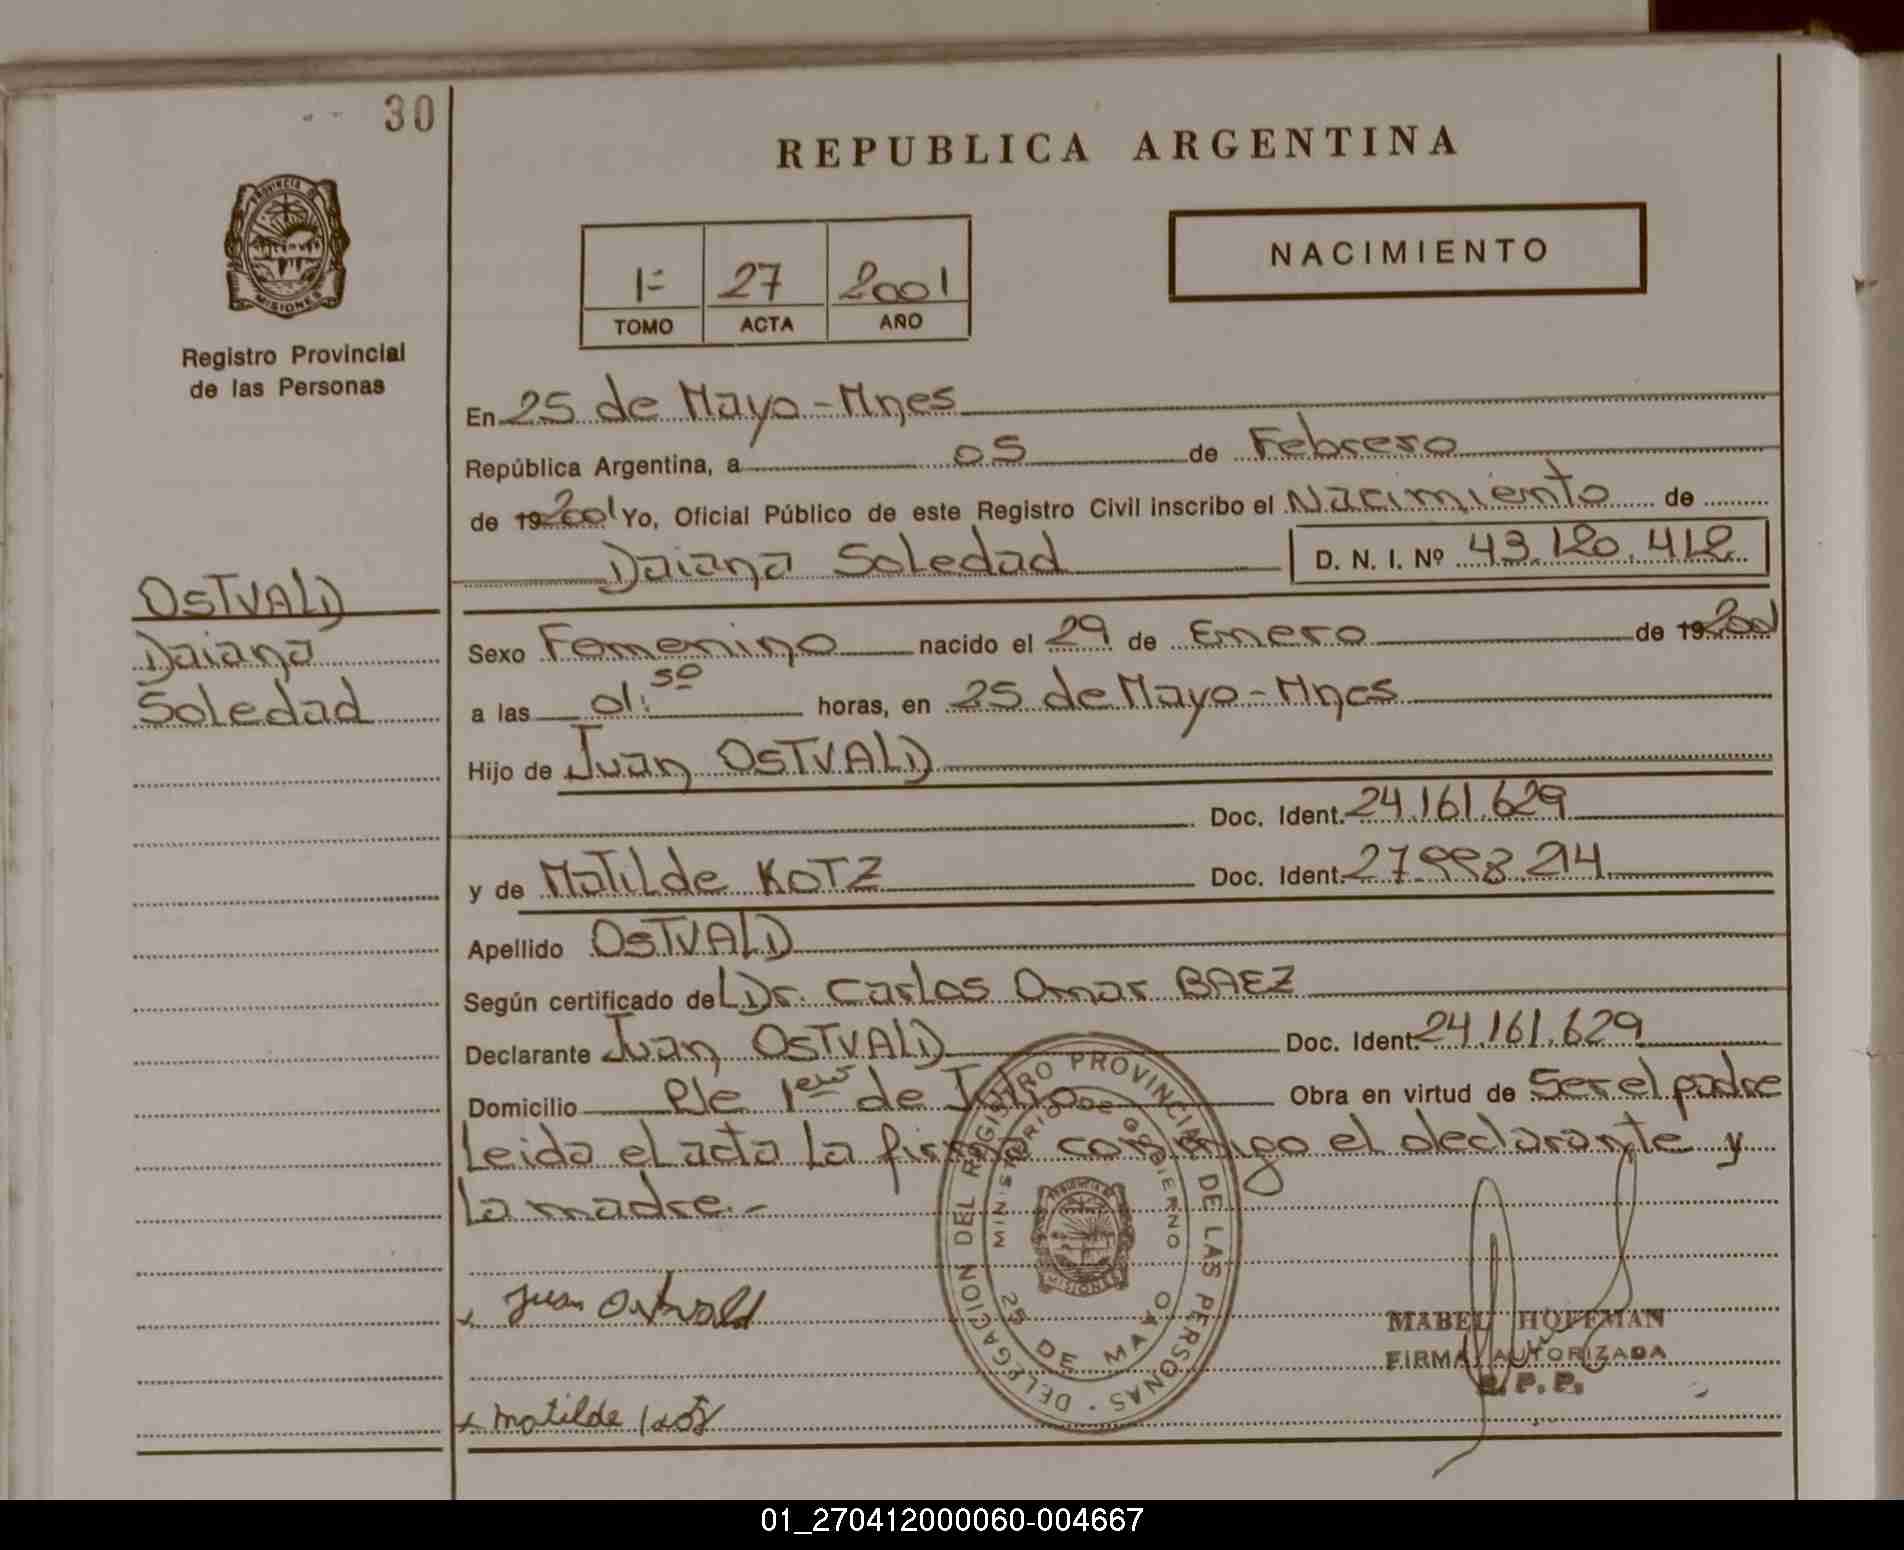 30
REPUBLICA ARGENTINA
PROVINCIA DE
MISIONES
Registro Provincial
de las Personas
1=
27
2001
TOMO
ACTA
AÑO
NACIMIENTO
En 25 de Mayo - Mnes
República Argentina, a 05 de Febrero
de 19 2001 Yo, Oficial Público de este Registro Civil inscribo el Nacimiento de
Daiana Soledad D. N. I. Nº 43.120.412
OSTVALD
Daiana
Soledad
Sexo Femenino nacido el 29 de Enero de 19 2001
a las 01:50 horas, en 25 de Mayo - Mnes
Hijo de Juan OSTVALD
Doc. Ident. 24.161.629
y de Matilde KOTZ Doc. Ident. 27.998.214
Apellido OSTVALD
Según certificado de L Dr. Carlos Omar BAEZ
Declarante Juan OSTVALD Doc. Ident. 24.161.629
Domicilio Pje 1ero de Julio Obra en virtud de Ser el padre
Leida el acta la firma conmigo el declarante y
la madre.-
DELEGACION DEL REGISTRO PROVINCIAL DE LAS PERSONAS
MINISTERIO DE GOBIERNO
PROVINCIA DE
MISIONES
25 DE MAYO
x Juan Ostvald
MABEL HOFFMAN
FIRMA AUTORIZADA
R. P. P.
x Matilde Kotz
01_270412000060-004667